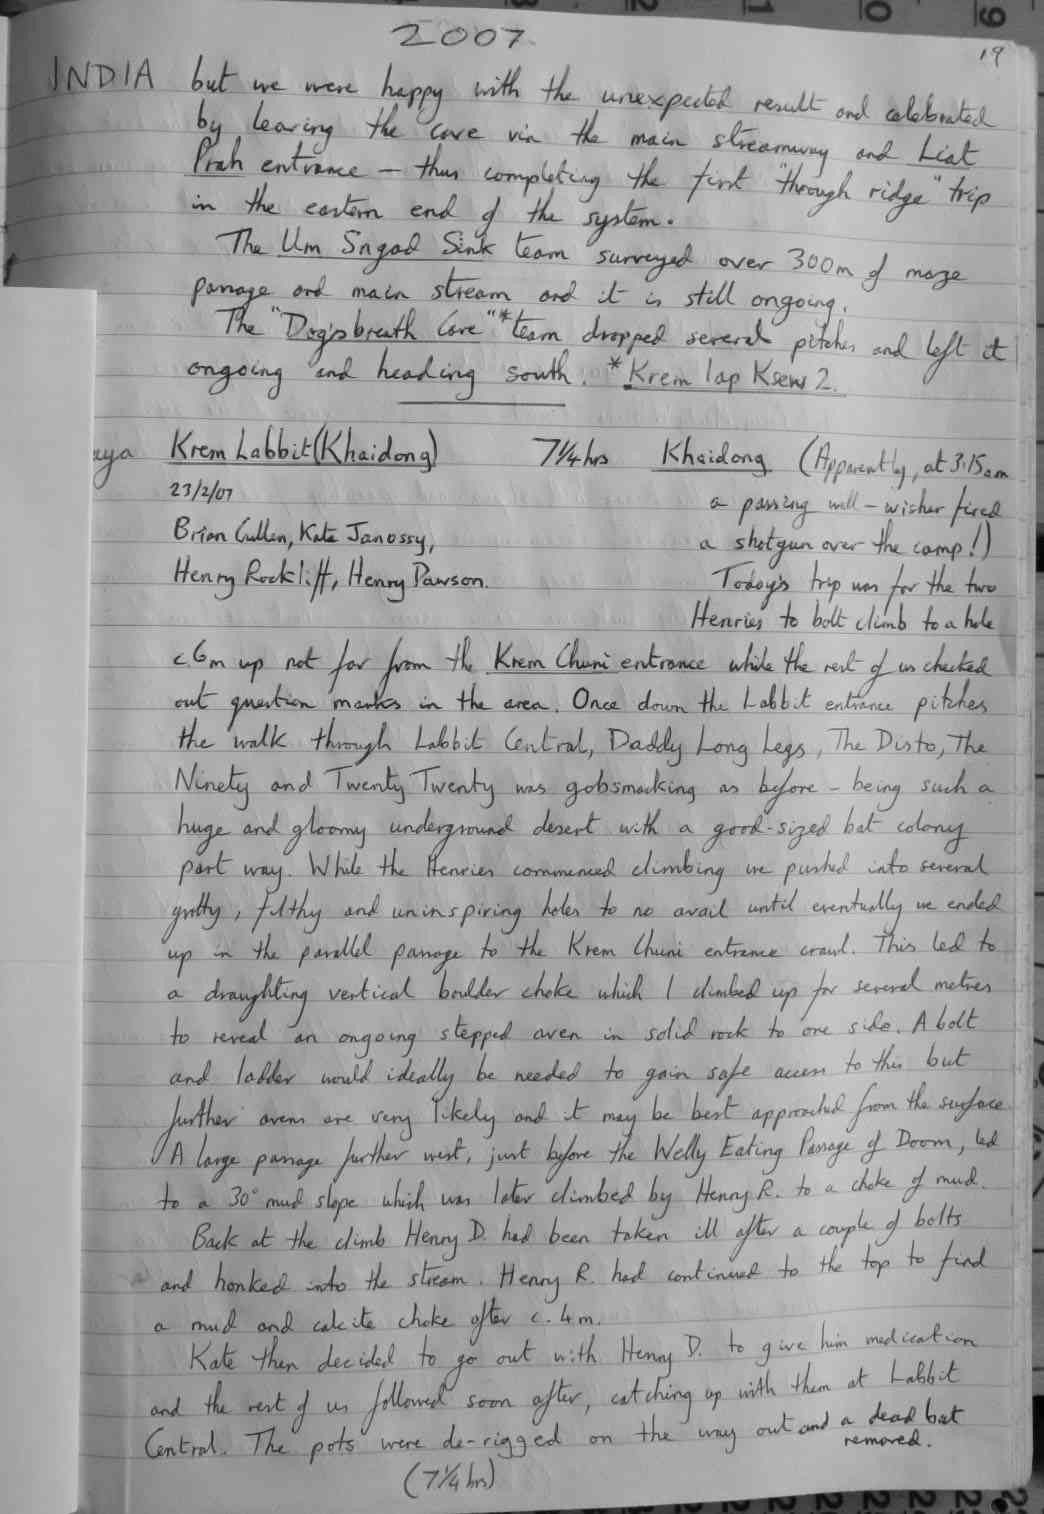 2007
19
INDIA but we were happy with the unexpected result and celebrated
by leaving the cave via the main streamway and Liat
Prah entrance - thus completing the first "through ridge" trip
in the eastern end of the system.
The Um Sngad Sink team surveyed over 300m of maze
passage and main stream and it is still ongoing.
The "Dogsbreath Cave"* team dropped several pitches and left it
ongoing and heading south. *Krem Iap Ksew 2.
aya Krem Labbit (Khaidong) 7¼ hrs Khaidong (Apparently, at 3.15am
23/2/07 a passing well-wisher fired
Brian Cullen, Kate Janossy, a shotgun over the camp!)
Henry Rockliff, Henry Dawson. Today's trip was for the two
Henries to bolt climb to a hole
c.6m up not far from the Krem Chuni entrance while the rest of us checked
out question marks in the area. Once down the Labbit entrance pitches
the walk through Labbit Central, Daddy Long Legs, The Disto, The
Ninety and Twenty Twenty was gobsmacking as before - being such a
huge and gloomy underground desert with a good-sized bat colony
part way. While the Henries commenced climbing we pushed into several
grotty, filthy and uninspiring holes to no avail until eventually we ended
up in the parallel passage to the Krem Chuni entrance crawl. This led to
a draughting vertical boulder choke which I climbed up for several metres
to reveal an ongoing stepped aven in solid rock to one side. A bolt
and ladder would ideally be needed to gain safe access to this but
further avens are very likely and it may be best approached from the surface.
A large passage further west, just before the Welly Eating Passage of Doom, led
to a 30° mud slope which was later climbed by Henry R. to a choke of mud.
Back at the climb Henry D. had been taken ill after a couple of bolts
and honked into the stream. Henry R. had continued to the top to find
a mud and calcite choke after c. 4m.
Kate then decided to go out with Henry D. to give him medication
and the rest of us followed soon after, catching up with them at Labbit
Central. The pots were de-rigged on the way out and a dead bat
removed.
(7¼ hrs)